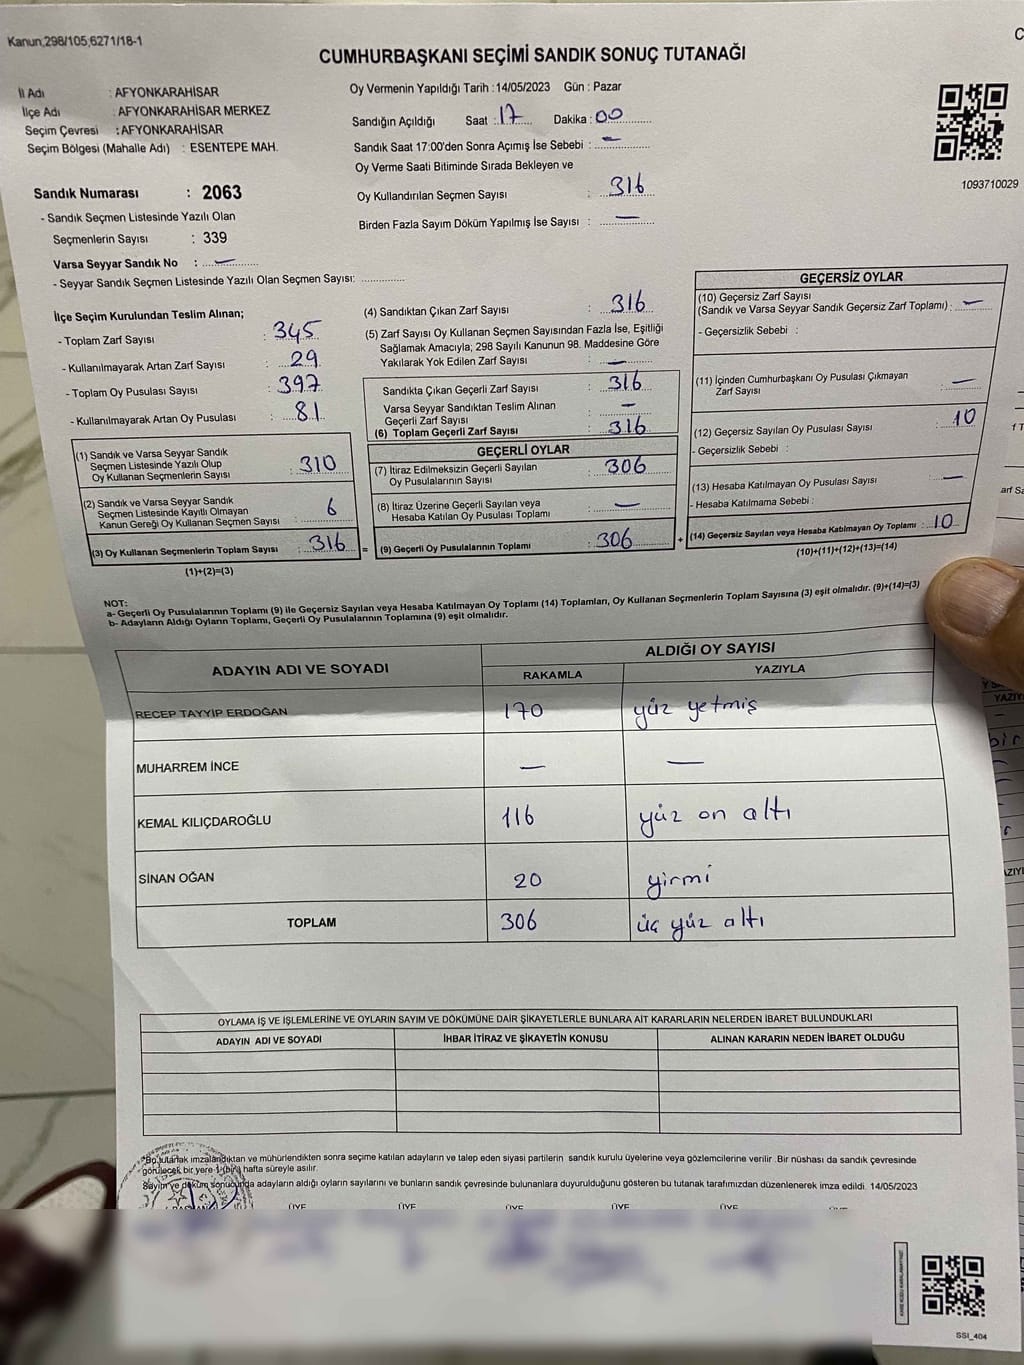 Kanun;298/105;6271/18-1
CUMHURBAŞKANI SEÇİMİ SANDIK SONUÇ TUTANAĞI
İl Adı : AFYONKARAHİSAR
İlçe Adı : AFYONKARAHİSAR MERKEZ
Seçim Çevresi : AFYONKARAHİSAR
Seçim Bölgesi (Mahalle Adı) : ESENTEPE MAH.
Oy Vermenin Yapıldığı Tarih :14/05/2023 Gün : Pazar
Sandığın Açıldığı Saat : 17 Dakika : 00
Sandık Saat 17:00'den Sonra Açımış İse Sebebi : —
Oy Verme Saati Bitiminde Sırada Bekleyen ve
Oy Kullandırılan Seçmen Sayısı : 316
Birden Fazla Sayım Döküm Yapılmış İse Sayısı : —
1093710029
Sandık Numarası : 2063
- Sandık Seçmen Listesinde Yazılı Olan
Seçmenlerin Sayısı : 339
Varsa Seyyar Sandık No : —
- Seyyar Sandık Seçmen Listesinde Yazılı Olan Seçmen Sayısı:
İlçe Seçim Kurulundan Teslim Alınan;
- Toplam Zarf Sayısı : 345
- Kullanılmayarak Artan Zarf Sayısı : 29
- Toplam Oy Pusulası Sayısı : 397
- Kullanılmayarak Artan Oy Pusulası : 81
(1) Sandık ve Varsa Seyyar Sandık
Seçmen Listesinde Yazılı Olup
Oy Kullanan Seçmenlerin Sayısı : 310
(2) Sandık ve Varsa Seyyar Sandık
Seçmen Listesinde Kayıtlı Olmayan
Kanun Gereği Oy Kullanan Seçmen Sayısı : 6
(3) Oy Kullanan Seçmenlerin Toplam Sayısı : 316 =
(1)+(2)=(3)
(4) Sandıktan Çıkan Zarf Sayısı : 316
(5) Zarf Sayısı Oy Kullanan Seçmen Sayısından Fazla İse, Eşitliği
Sağlamak Amacıyla; 298 Sayılı Kanunun 98. Maddesine Göre
Yakılarak Yok Edilen Zarf Sayısı : —
Sandıkta Çıkan Geçerli Zarf Sayısı : 316
Varsa Seyyar Sandıktan Teslim Alınan
Geçerli Zarf Sayısı : —
(6) Toplam Geçerli Zarf Sayısı : 316
GEÇERLİ OYLAR
(7) İtiraz Edilmeksizin Geçerli Sayılan
Oy Pusulalarının Sayısı : 306
(8) İtiraz Üzerine Geçerli Sayılan veya
Hesaba Katılan Oy Pusulası Toplamı : —
(9) Geçerli Oy Pusulalarının Toplamı : 306 +
GEÇERSİZ OYLAR
(10) Geçersiz Zarf Sayısı
(Sandık ve Varsa Seyyar Sandık Geçersiz Zarf Toplamı) : —
- Geçersizlik Sebebi :
(11) İçinden Cumhurbaşkanı Oy Pusulası Çıkmayan
Zarf Sayısı : —
(12) Geçersiz Sayılan Oy Pusulası Sayısı : 10
- Geçersizlik Sebebi :
(13) Hesaba Katılmayan Oy Pusulası Sayısı : —
- Hesaba Katılmama Sebebi :
(14) Geçersiz Sayılan veya Hesaba Katılmayan Oy Toplamı : 10
(10)+(11)+(12)+(13)=(14)
NOT:
a- Geçerli Oy Pusulalarının Toplamı (9) ile Geçersiz Sayılan veya Hesaba Katılmayan Oy Toplamı (14) Toplamları, Oy Kullanan Seçmenlerin Toplam Sayısına (3) eşit olmalıdır. (9)+(14)=(3)
b- Adayların Aldığı Oyların Toplamı, Geçerli Oy Pusulalarının Toplamına (9) eşit olmalıdır.
ADAYIN ADI VE SOYADI ALDIĞI OY SAYISI
RAKAMLA YAZIYLA
RECEP TAYYİP ERDOĞAN 170 yüz yetmiş
MUHARREM İNCE — —
KEMAL KILIÇDAROĞLU 116 yüz on altı
SİNAN OĞAN 20 yirmi
TOPLAM 306 üç yüz altı
OYLAMA İŞ VE İŞLEMLERİNE VE OYLARIN SAYIM VE DÖKÜMÜNE DAİR ŞİKAYETLERLE BUNLARA AİT KARARLARIN NELERDEN İBARET BULUNDUKLARI
ADAYIN ADI VE SOYADI İHBAR İTİRAZ VE ŞİKAYETİN KONUSU ALINAN KARARIN NEDEN İBARET OLDUĞU
*Bu tutanak imzalandıktan ve mühürlendikten sonra seçime katılan adayların ve talep eden siyasi partilerin sandık kurulu üyelerine veya gözlemcilerine verilir. Bir nüshası da sandık çevresinde
görülecek bir yere 1 (bir) hafta süreyle asılır.
Sayım ve döküm sonucunda adayların aldığı oyların sayılarını ve bunların sandık çevresinde bulunanlara duyurulduğunu gösteren bu tutanak tarafımızdan düzenlenerek imza edildi. 14/05/2023
ÜYE ÜYE ÜYE ÜYE ÜYE
SSI_404